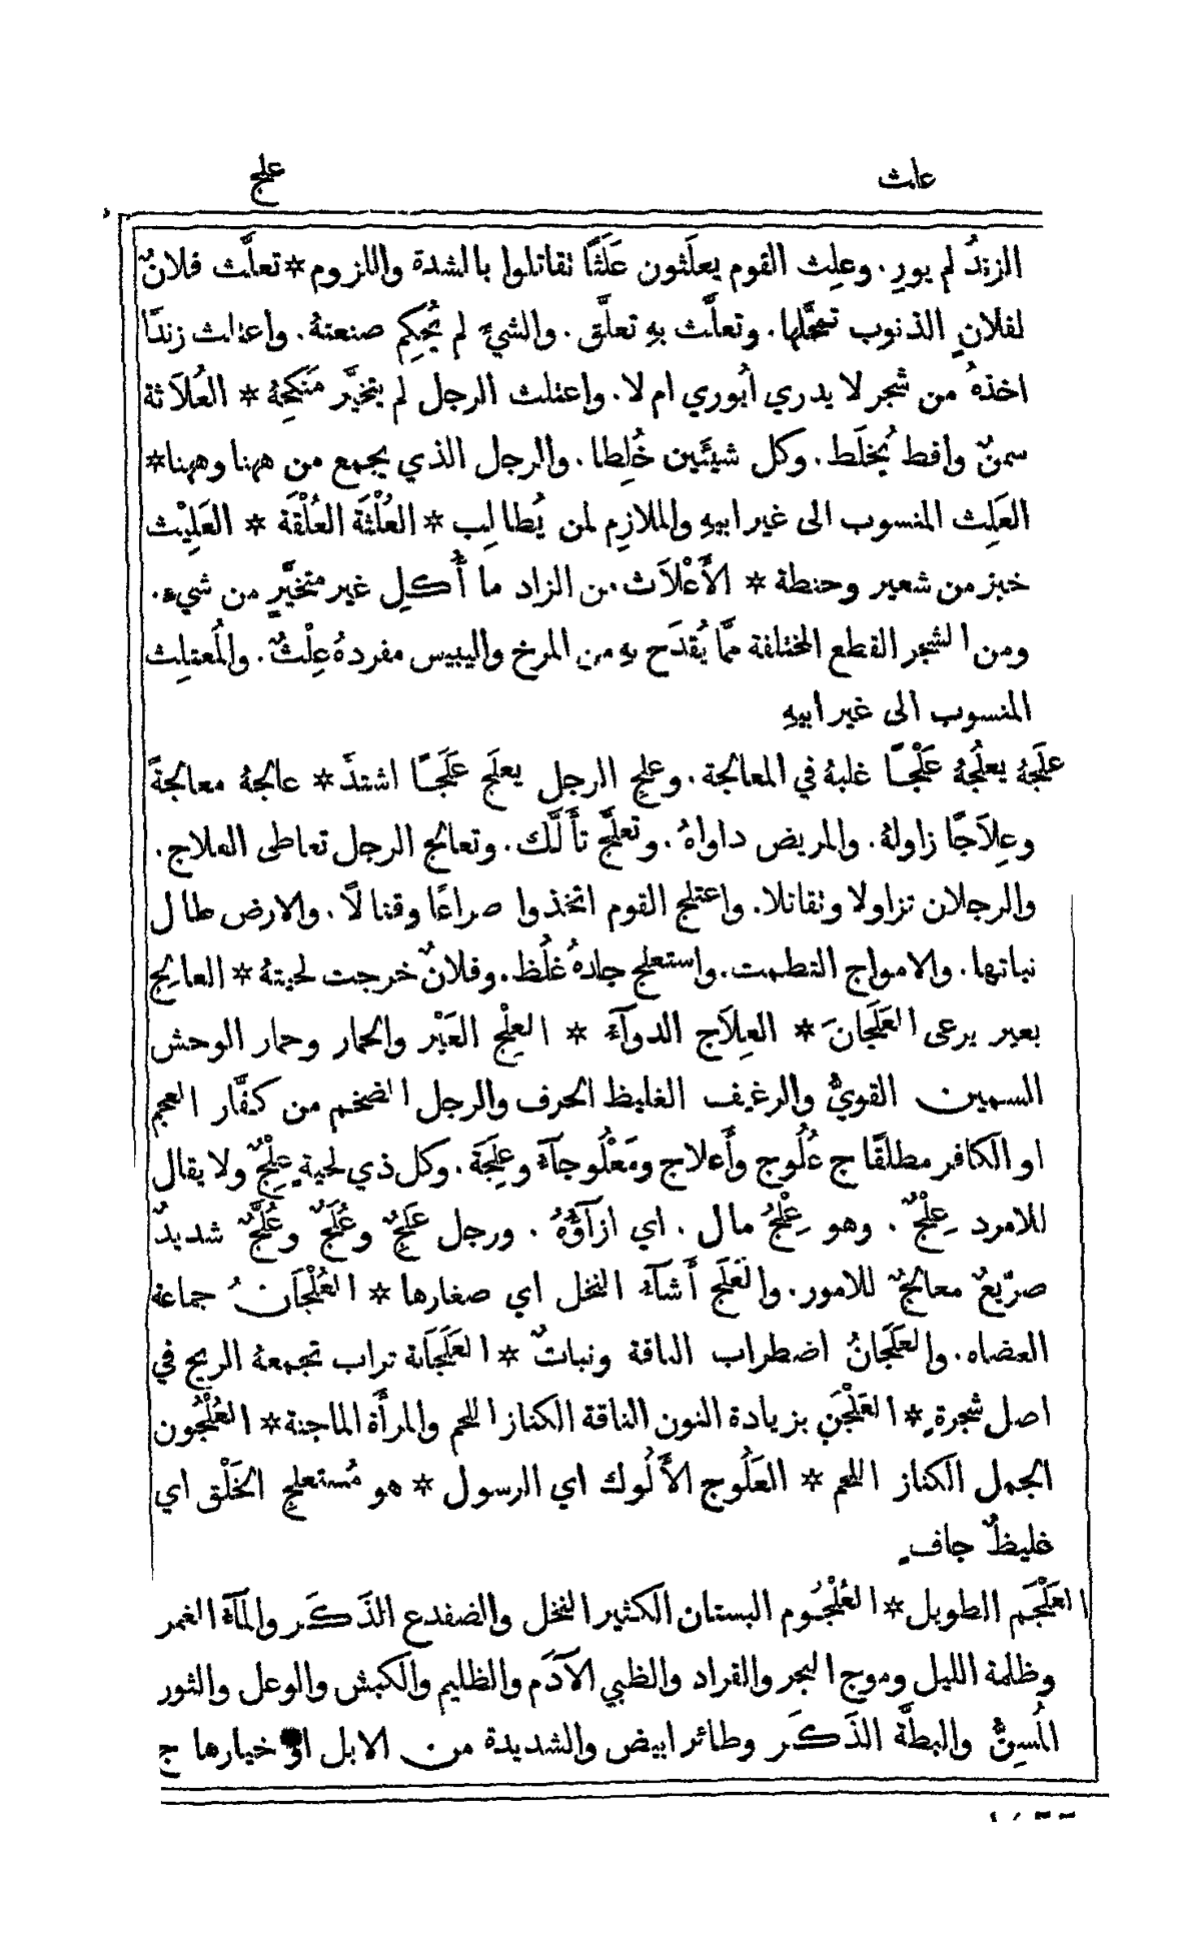 علث علج
الزندُ لم يورِ. وعلِث القوم يعلَثون عَلَثًا تقاتلوا بالشدة واللزوم * تعلَّث فلانٌ
لفلانٍ الذنوب تمحَّلها. وتعلَّث بهِ تعلَّق. والشيءَ لم يُحكِم صنعتهُ. واعتلث زندًا
اخذهُ من شجر لا يدري أيوري ام لا. واعتلث الرجل لم يتخيَّر مَنكِحهُ * العُلَاثة
سمنٌ واقط يُخلَط. وكل شيئَين خُلِطا. والرجل الذي يجمع من ههنا وههنا *
العَلِث المنسوب الى غير ابيهِ والملازِم لمن يُطالِب * العُلْثَة العُلْقَة * العَلِيْث
خبز من شعير وحنطة * الأَعْلَاث من الزاد ما أُكل غير متخيَّرٍ من شيء.
ومن الشجر القطع المختلفة ممَّا يُقدَح بهِ من المرخ واليبيس مفردهُ عِلْثٌ. والمُعتلِث
المنسوب الى غير ابيهِ
علَجَهُ يعلُجُهُ عَلْجًا غلبهُ في المعالجة. وعلِج الرجل يعلَج عَلَجًا اشتدَّ * عالجهُ معالجةً
وعِلَاجًا زاولهُ. والمريض داواهُ. وتعلَّج تأَلَّك. وتعالج الرجل تعاطى العلاج.
والرجلان تزاولا وتقاتلا. واعتلج القوم اتخذوا صراعًا وقتالًا. والارض طال
نباتها. والامواج التطمت. واستعلج جلدهُ غلُظ. وفلانٌ خرجت لحيتهُ * العالِج
بعير يرعى العَلَجَانَ * العِلَاج الدوآءَ * العِلْج العَيْر والحمار وحمار الوحش
السمين القويُّ والرغيف الغليظ الحرف والرجل الضخم من كفَّار العجم
او الكافر مطلقًا ج عُلُوج وأَعلاج ومَعْلُوجآءَ وعِلَجَة. وكل ذي لحيةٍ عِلْجٌ ولا يقال
للامرد عِلْجٌ. وهو عِلْجُ مال. اي ازآؤُهُ. ورجل عَلِجٌ وعُلَجٌ وعُلَّجٌ شديدٌ
صرّيعٌ معالجٌ للامور. والعَلَج أَشآءُ النخل اي صغارها * العُلْجَانُ جماعة
العضاه. والعَلَجَانُ اضطراب الناقة ونباتٌ * العَلَجَانة تراب تجمعهُ الريح في
اصل شجرةٍ * العَلْجَن بزيادة النون الناقة الكناز اللحم والمرأَة الماجنة * العُلْجُون
الجمل الكناز اللحم * العَلُوج الأَلُوك اي الرسول * هو مُستعلِج الخَلْق اي
غليظٌ جافٍ
العَلْجَم الطويل * العُلْجُوم البستان الكثير النخل والضفدع الذَكَر والمآءُ الغمر
وظلمة الليل وموج البحر والقراد والظبي الآدَم والظليم والكبش والوعل والثور
المُسِنُّ والبطَّة الذَكَر وطائر ابيض والشديدة من الابل او خيارها ج